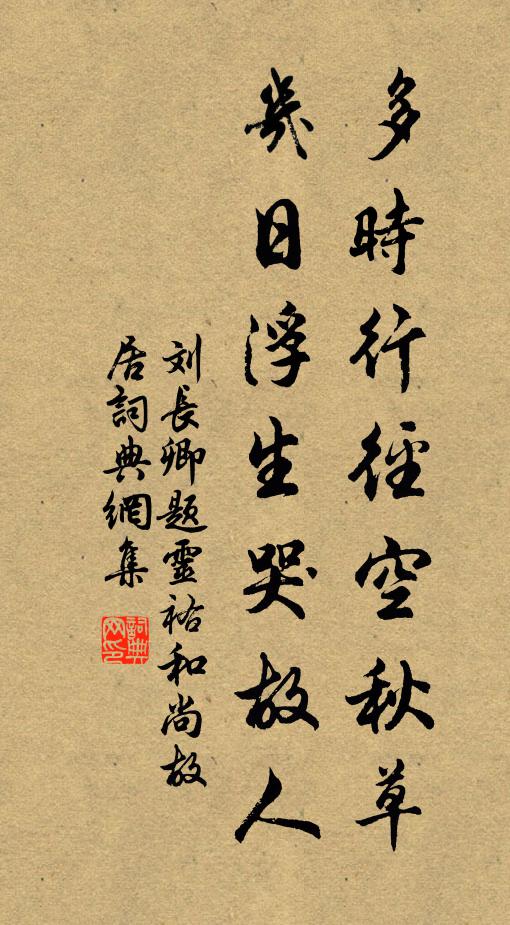 多時行徑空秋草
幾日浮生哭故人
刘長卿題靈祐和尚故
居詞典網集
詞典网印